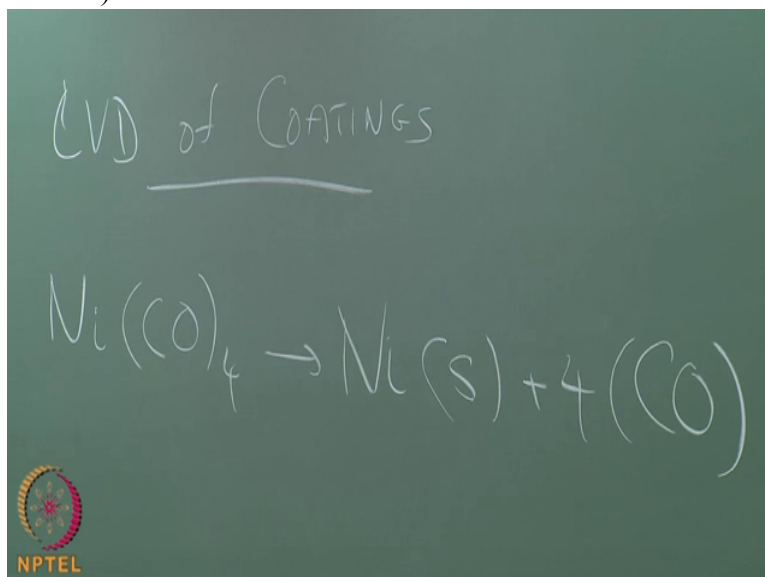 )
CVD of COATINGS
Ni(CO)₄ → Ni(s) + 4(CO)
NPTEL